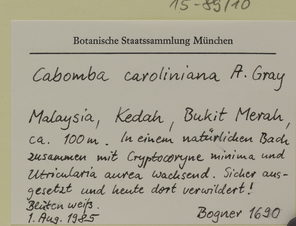 15-89/10
Botanische Staatssammlung München
Cabomba caroliniana A. Gray
Malaysia, Kedah, Bukit Merah,
ca. 100 m. In einem natürlichen Bach
zusammen mit Cryptocoryne minima und
Utricularia aurea wachsend. Sicher aus-
gesetzt und heute dort verwildert!
Blüten weiß.
1. Aug. 1985 Bogner 1690